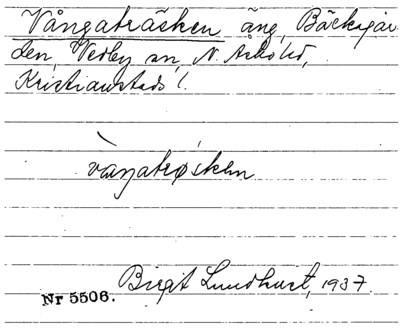 Vångaträsken äng, Bäckagår
den, Vedby sn, N. Åsbo hd,
Kristianstads l.
vàŋatrǿsken
Birgit Lundquist, 1937.
Nr 5506.